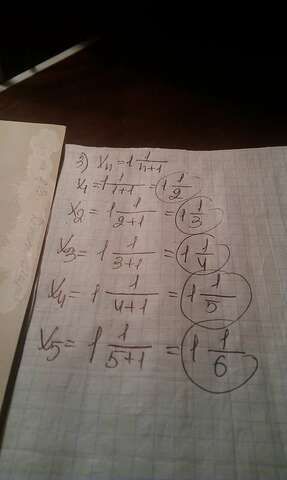 3) Xn = 1 1/n+1
X1 = 1 1/1+1 = 1 1/2
X2 = 1 1/2+1 = 1 1/3
X3 = 1 1/3+1 = 1 1/4
X4 = 1 1/4+1 = 1 1/5
X5 = 1 1/5+1 = 1 1/6